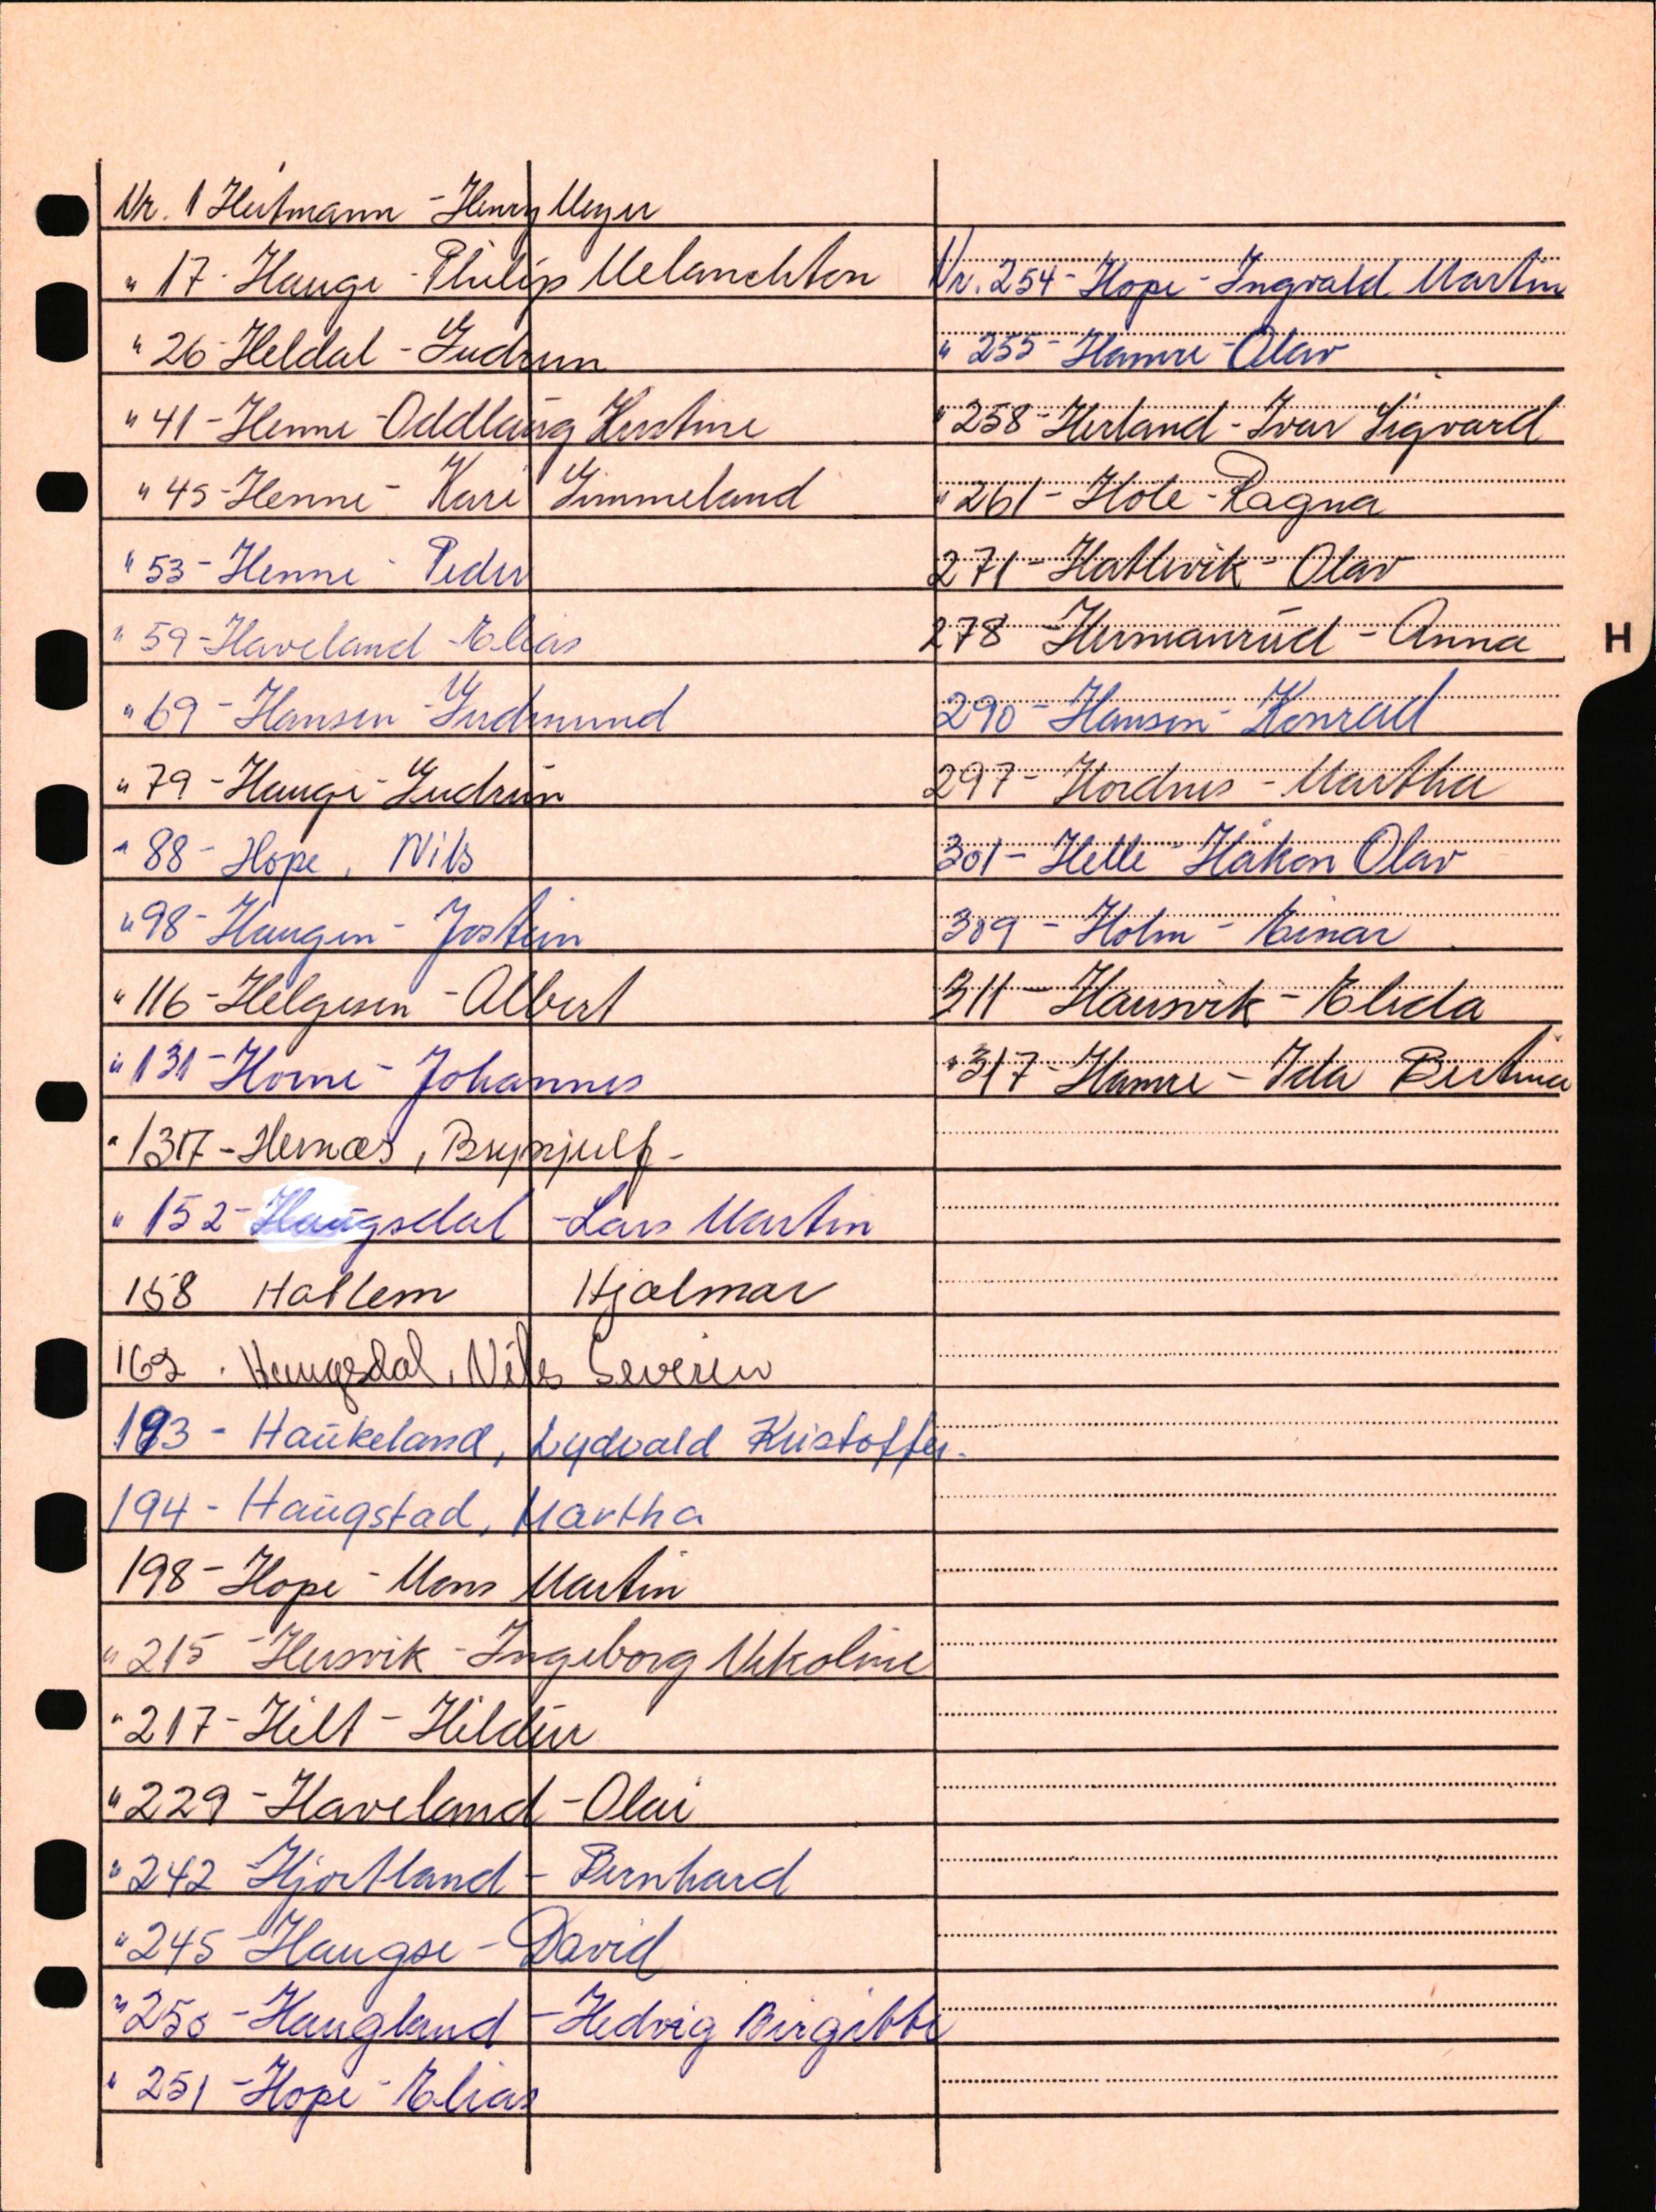 Nr. 1 Heitmann - Henry Meyer
" 17 - Hauge - Philip Melanchton
" 26 - Heldal - Gudrun
" 41 - Henne - Oddlaug Kirstine
" 45 - Henne - Kari Gimmeland
" 53 - Henne - Peder
" 59 - Haveland - Elias
" 69 - Hansen - Gudmund
" 79 - Hauge - Gudrun
" 88 - Hope, Nils
" 98 - Haugen - Jostein
" 116 - Helgesen - Albert
" 131 - Horne - Johannes
" 137 - Hernæs, Brynjulf -
" 152 - Haugsdal - Lars Martin
158 Hatlem Hjalmar
162. Haugsdal, Nils Severin
193 - Haukeland, Lydvald Kristoffer.
194 - Haugstad, Martha
198 - Hope - Mons Martin
" 215 - Husvik - Ingeborg Nikoline
" 217 - Hilt - Hildur
" 229 - Haveland - Olai
" 242 Hjortland - Bernhard
" 245 Haugse - David
" 250 - Haugland - Hedvig Birgitte
" 251 - Hope - Elias
Nr. 254 - Hope - Ingvald Martin
" 255 - Hamre - Olav
" 258 - Herland - Ivar Sigvard
" 261 - Hole - Ragna
271 - Hatlevik - Olav
278 - Hermanrud - Anna
290 - Hansen - Konrad
297 - Hordnes - Martha
301 - Helle - Håkon Olav
309 - Holm - Einar
311 - Hausvik - Elida
" 317 - Hamre - Ida Bertina
H